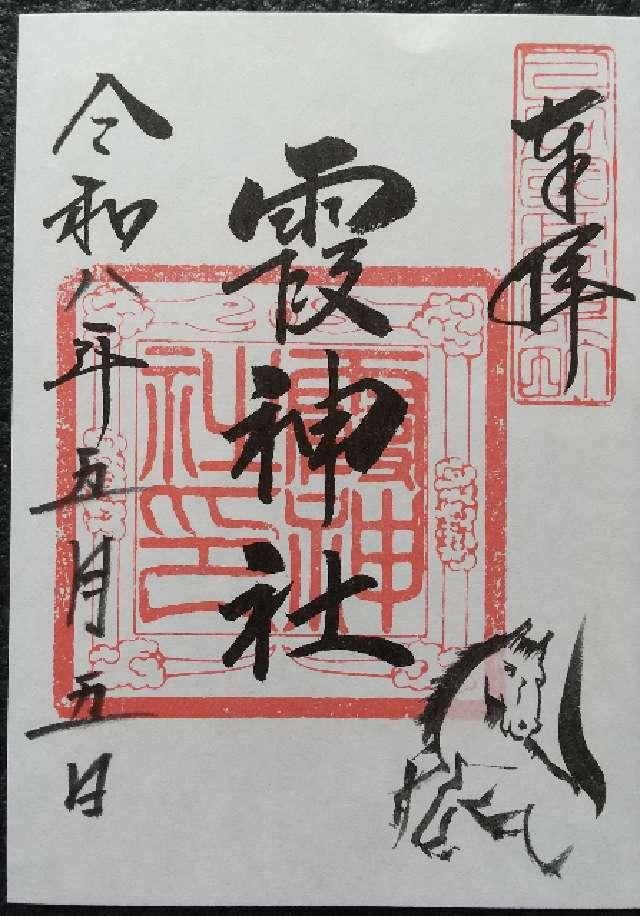 奉拝
霞神社
霞神社印
令和八年五月五日